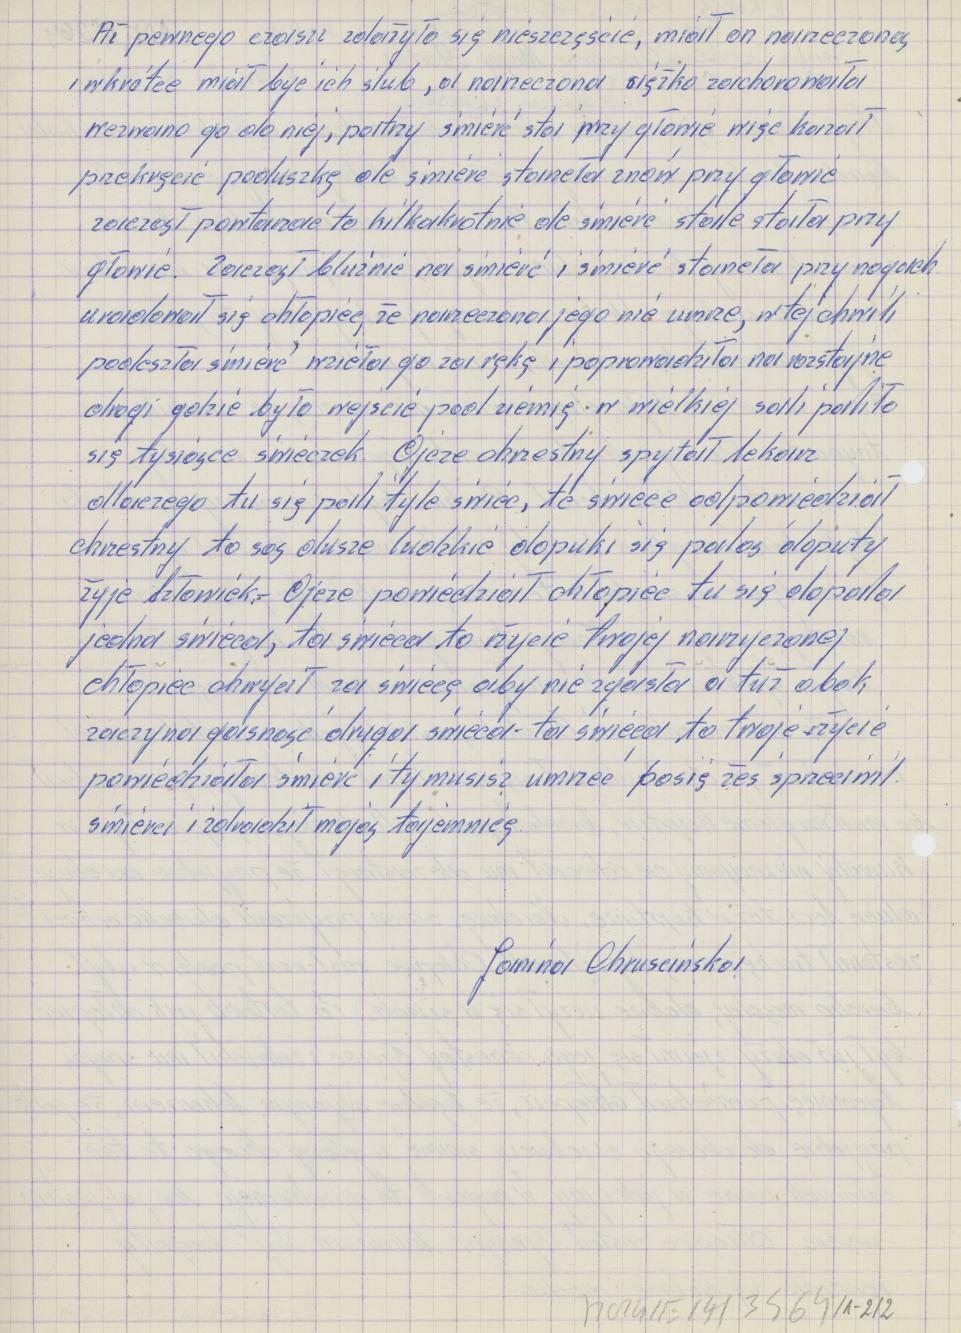 Aż pewnego czasu zdarzyło się nieszczęście, miał on narzeczoną
i wkrótce miał być ich ślub, a narzeczona ciężko zachorowała
wezwano go do niej, patrzy śmierć stoi przy głowie więc kazał
przekręcić poduszkę ale śmierć staneła znów przy głowie
zaczął powtarzać to kilkakrotnie ale śmierć stale stała przy
głowie. Zaczął bluźnić na śmierć i śmierć staneła przy nogach
uradował się chłopiec, że narzeczona jego nie umrze, w tej chwili
podeszła śmierć, wzieła go za rękę i poprowadziła na rozstajne
drogi gdzie było wejście pod ziemię w wielkiej sali paliło
się tysiące świeczek. Ojcze chrzestny spytał lekarz
dlaczego tu się pali tyle świec, te świece odpowiedział
chrzestny to są dusze ludzkie dopuki się palą doputy
żyje człowiek.- Ojcze powiedział chłopiec tu się dopala
jedna świeca, ta świeca to rzycie twojej narzyczonej
chłopiec chwycił za świecę aby nie zgasła a tuż obok
zaczyna gasnąć druga świeca - ta świeca to twoje rzycie
powiedziała śmierć i ty musisz umrzeć bosię żeś sprzeciwił
śmierci i zdradził moją tajemnicę.
Janina Chruscińska
3464/1-2/2